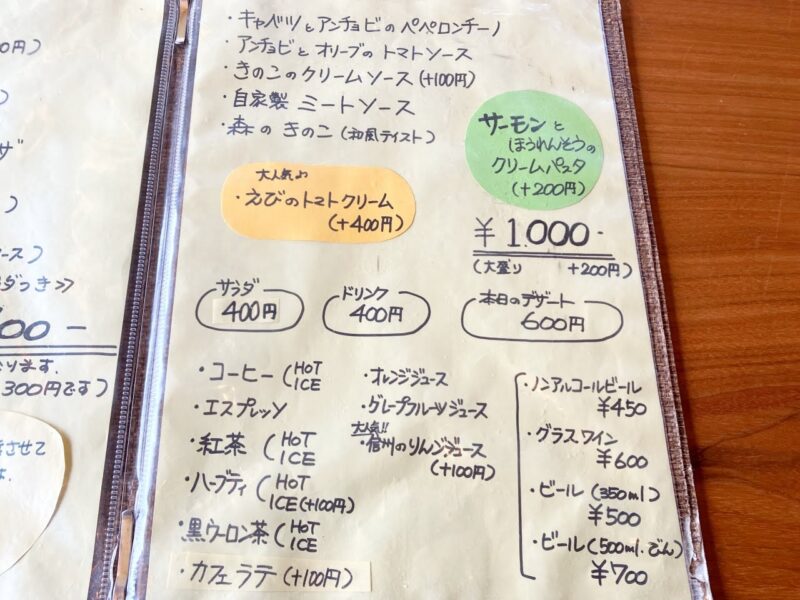 ・キャベツとアンチョビのペペロンチーノ
・アンチョビとオリーブのトマトソース
・きのこのクリームソース(+100円)
・自家製 ミートソース
・森のきのこ(和風テイスト)
サーモンと
ほうれんそうの
クリームパスタ
(+200円)
大人気♪
・えびのトマトクリーム
(+400円)
¥1.000-
(大盛り +200円)
サラダ
400円
ドリンク
400円
本日のデザート
600円
・コーヒー(HOT
ICE
・エスプレッソ
・紅茶(HOT
ICE
・ハーブティ(HOT
ICE(+100円)
・黒ウーロン茶(HOT
ICE
・カフェラテ(+100円)
・オレンジジュース
・グレープフルーツジュース
大人気!!
・信州のりんごジュース
(+100円)
・ノンアルコールビール
¥450
・グラスワイン
¥600
・ビール(350ml)
¥500
・ビール(500ml.びん)
¥700
0円)
)
ザ
)
ース)
ダつき≫
00-
なります.
300円です)
させて